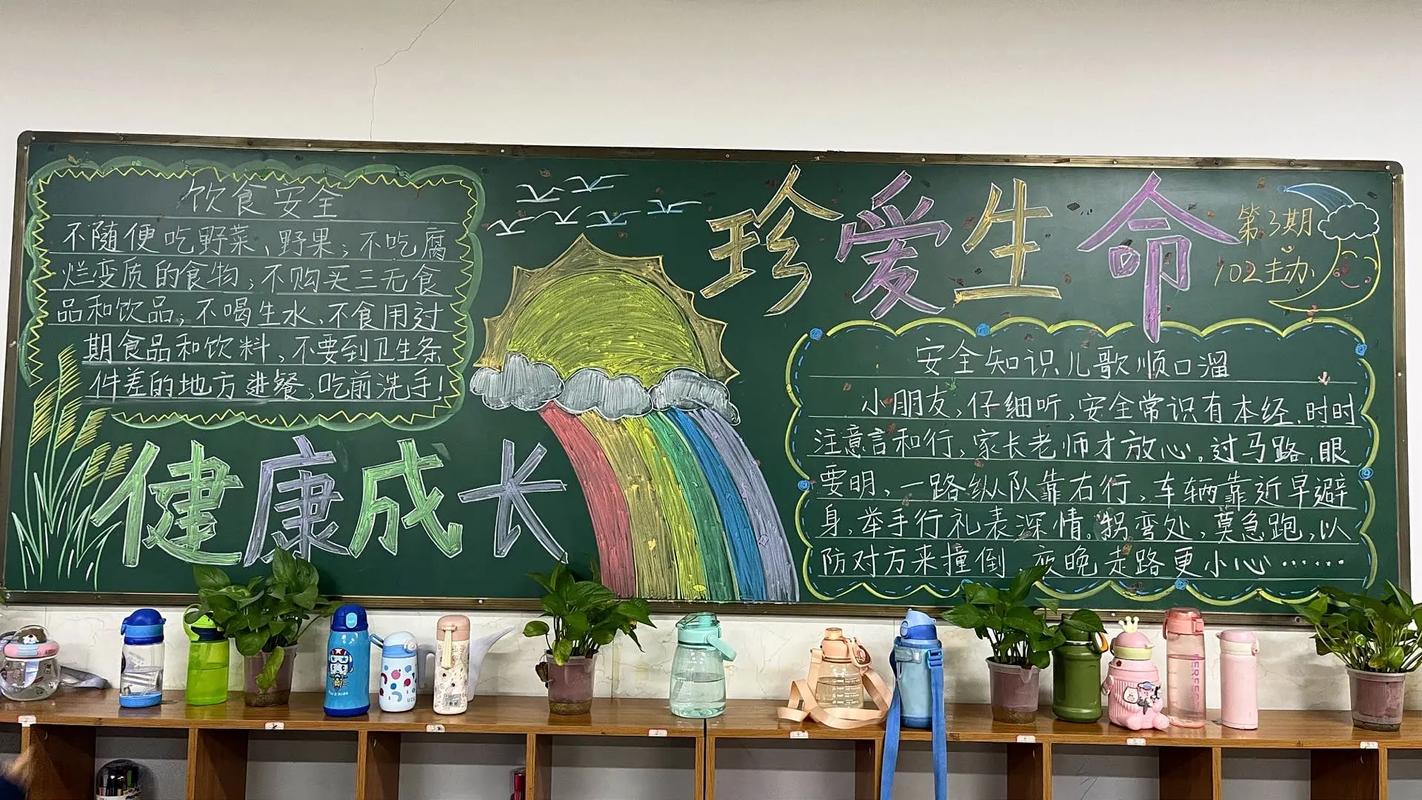 饮食安全
不随便吃野菜、野果；不吃腐
烂变质的食物；不购买三无食
品和饮品；不喝生水、不食用过
期食品和饮料，不要到卫生条
件差的地方进餐，吃前洗手！
健康成长
珍爱生命
第3期
102主办
安全知识儿歌顺口溜
小朋友，仔细听，安全常识有本经，时时
注意言和行，家长老师才放心。过马路，眼
要明，一路纵队靠右行，车辆靠近早避
身，举手行礼表深情。拐弯处，莫急跑，以
防对方来撞倒，夜晚走路更小心……